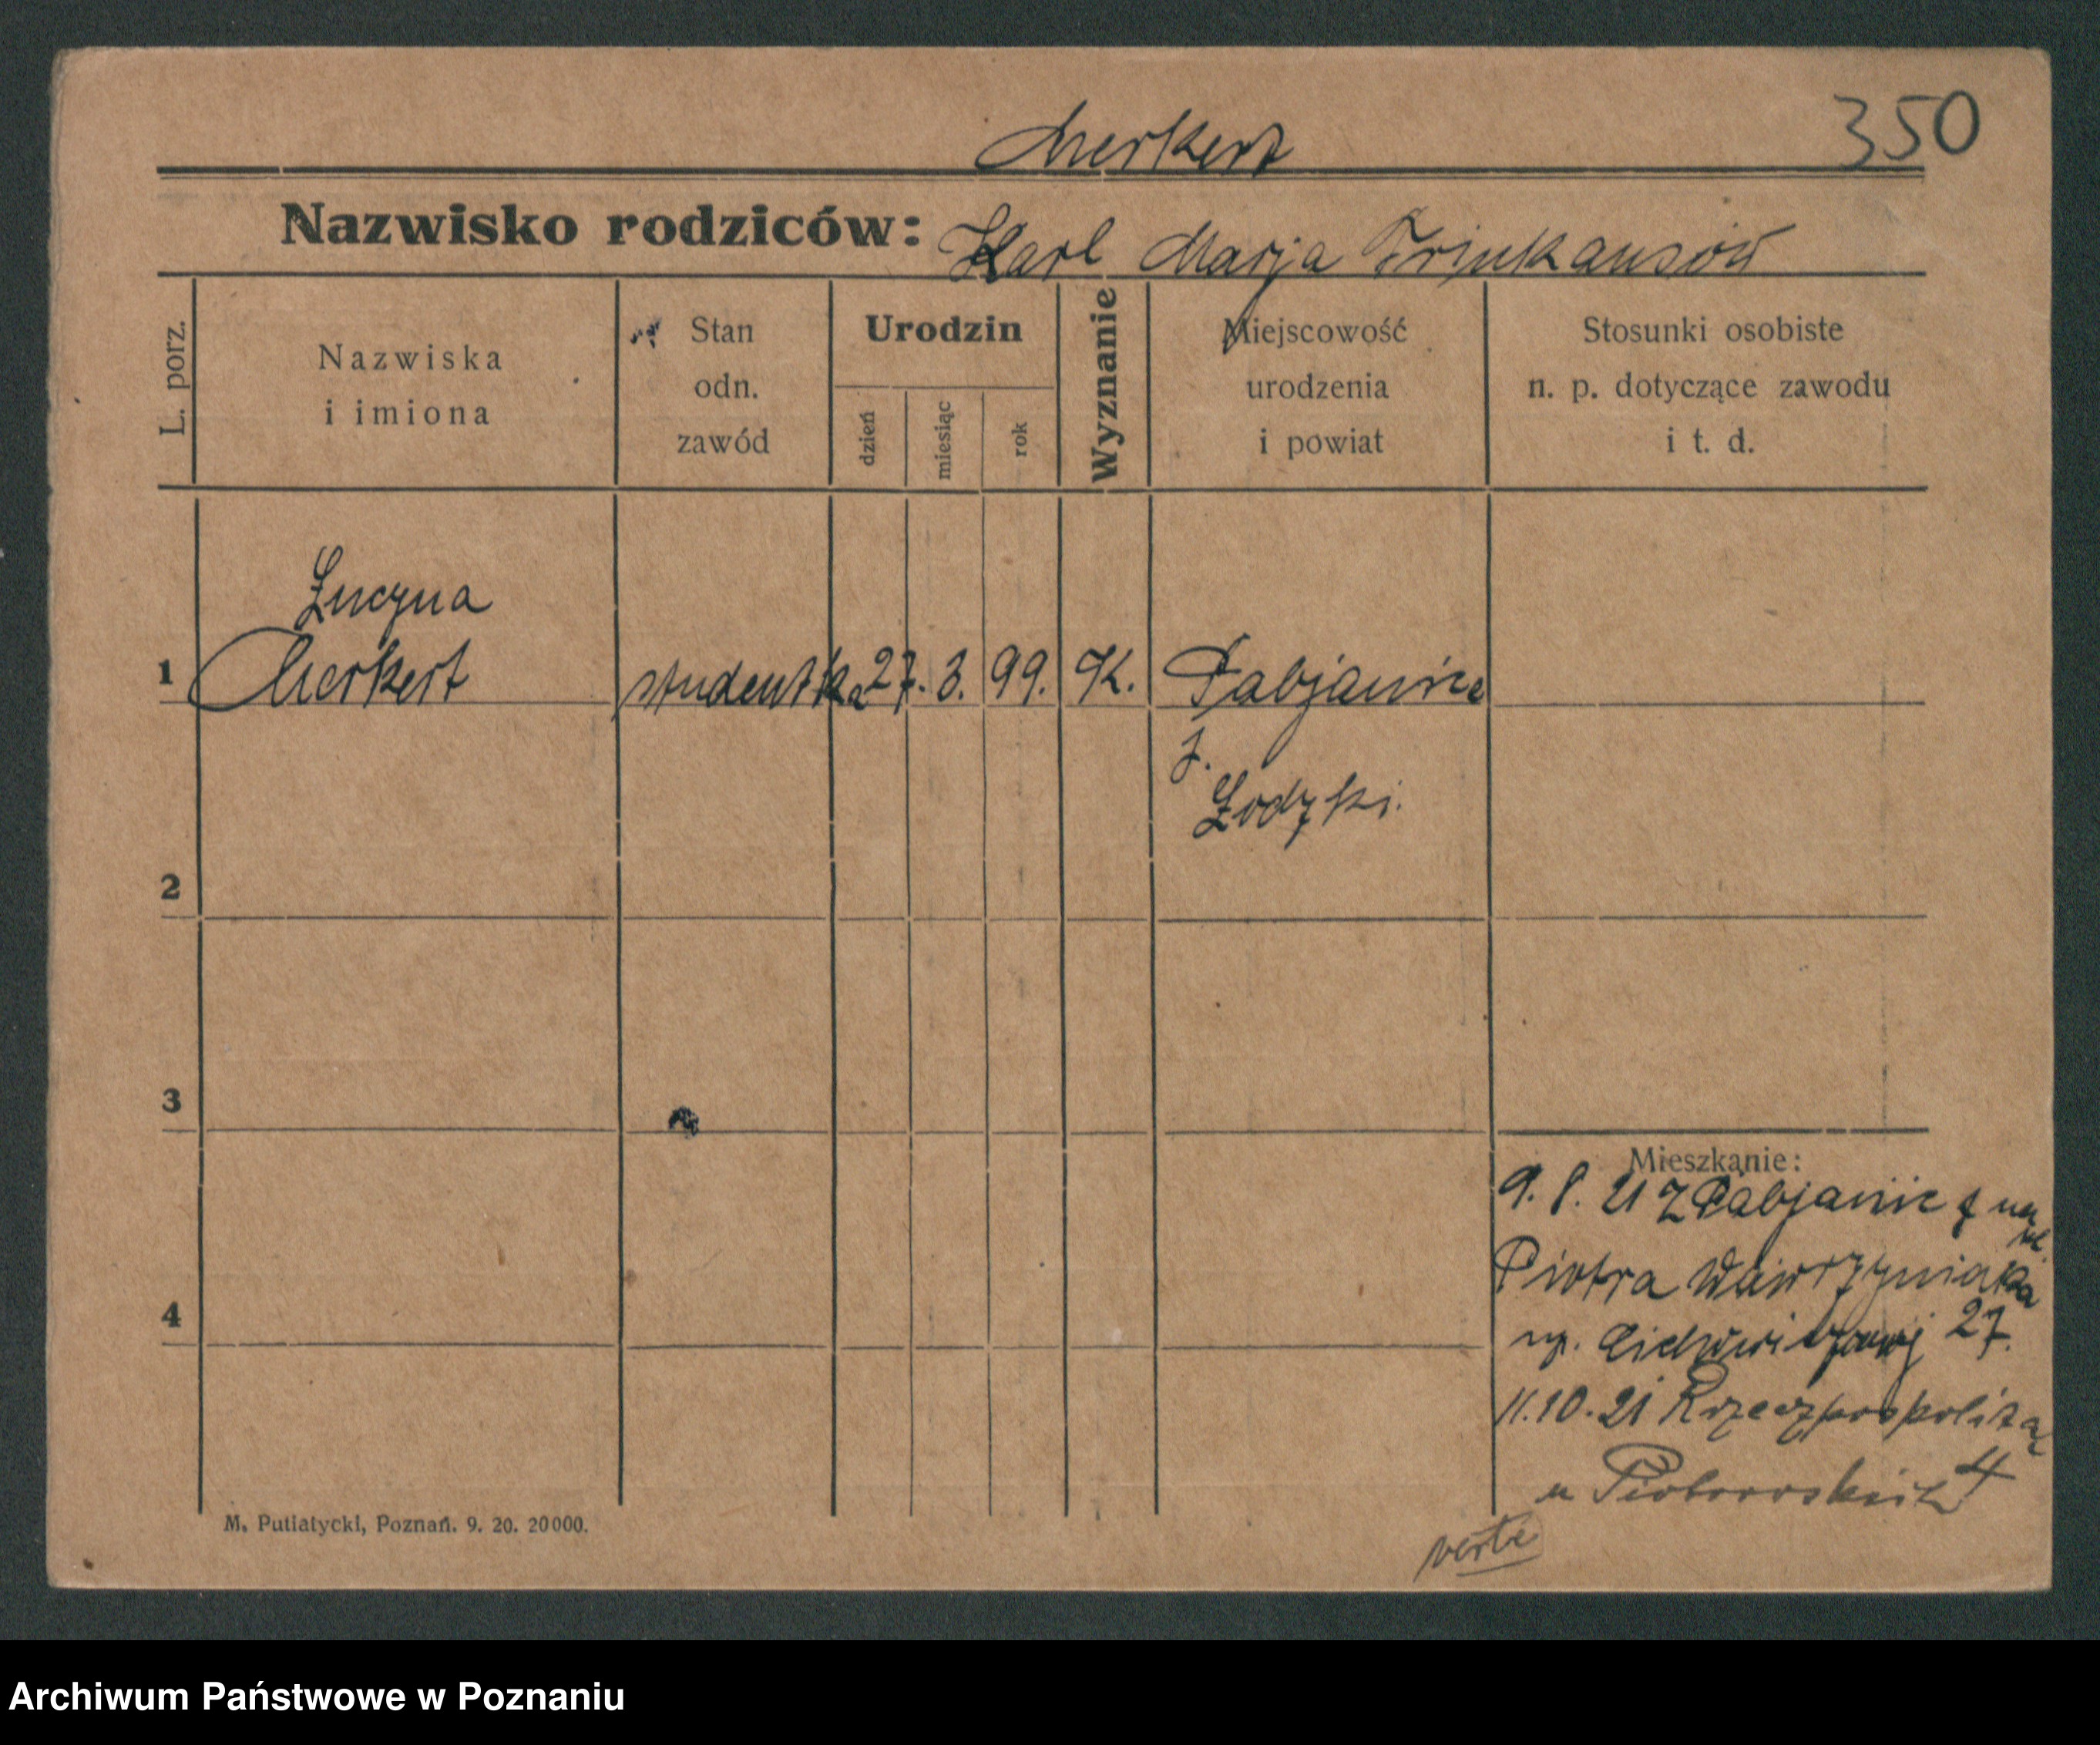 Merkert
350
Nazwisko rodziców: Karl Marja Trinkausów
L. porz.
Nazwiska
i imiona
Stan
odn.
zawód
Urodzin
dzień
miesiąc
rok
Wyznanie
Miejscowość
urodzenia
i powiat
Stosunki osobiste
n. p. dotyczące zawodu
i t. d.
Lucyna
1 Merkert studentka 27. 3. 99. K. Pabjanice
Łodzki.
2
3
4
Mieszkanie:
9. 8. 21 z Pabjanic na
Piotra Wawrzyniaka
27.
11.10.21 Rzeczpospolita
u 4
verte
M. Putiatycki, Poznań. 9. 20. 20000.
Archiwum Państwowe w Poznaniu